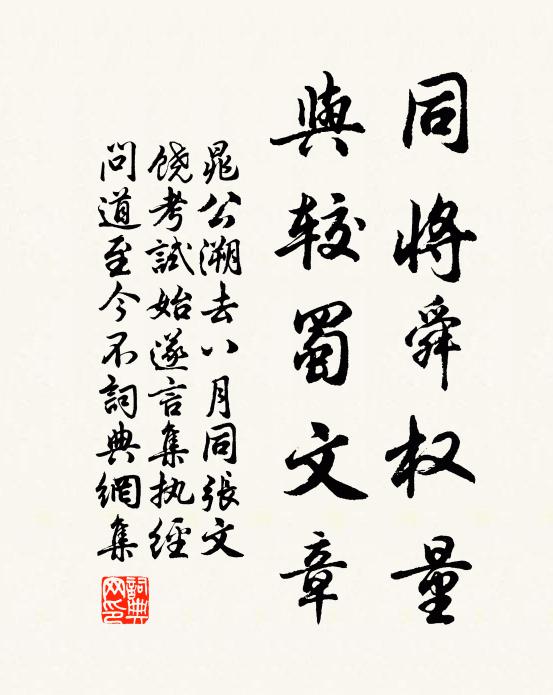 同将舜权量
與较蜀文章
晁公溯去八月同張文
饶考試始遂言集执經
問道至今不詞典網集
詞典
網印